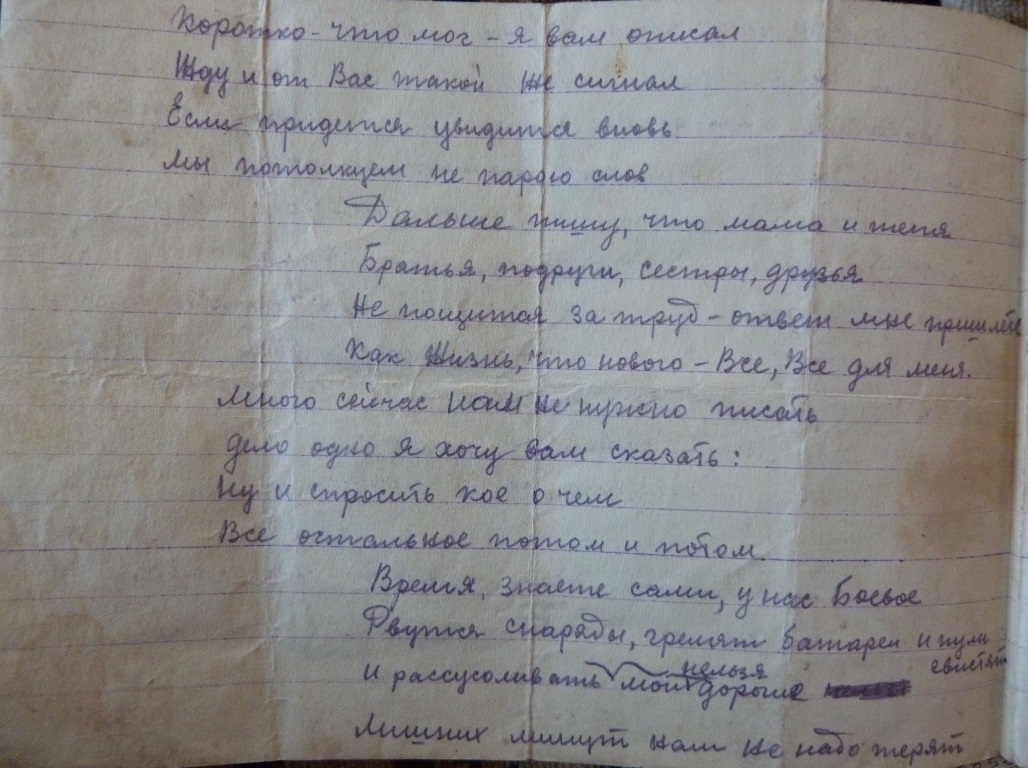 Коротко - что мог - я вам описал
Жду и от Вас такой же сигнал
Если придется увидится вновь
Мы потолкуем не парою слов
Дальше пишу, что мама и тетя
Братья, подруги, сестры, друзья
Не пощитая за труд - ответ мне пришлёте
Как жизнь, что нового - Все, Все для меня.
Много сейчас нам не нужно писать
Дело одно я хочу вам сказать:
Ну и спросить кое о чем
Все остальное потом и потом
Время, знаете сами, у нас боевое
Рвутся снаряды, гремят батареи и пули
свистят
И рассусоливать мои нельзя дорогие
Лишних минут нам не надо терят